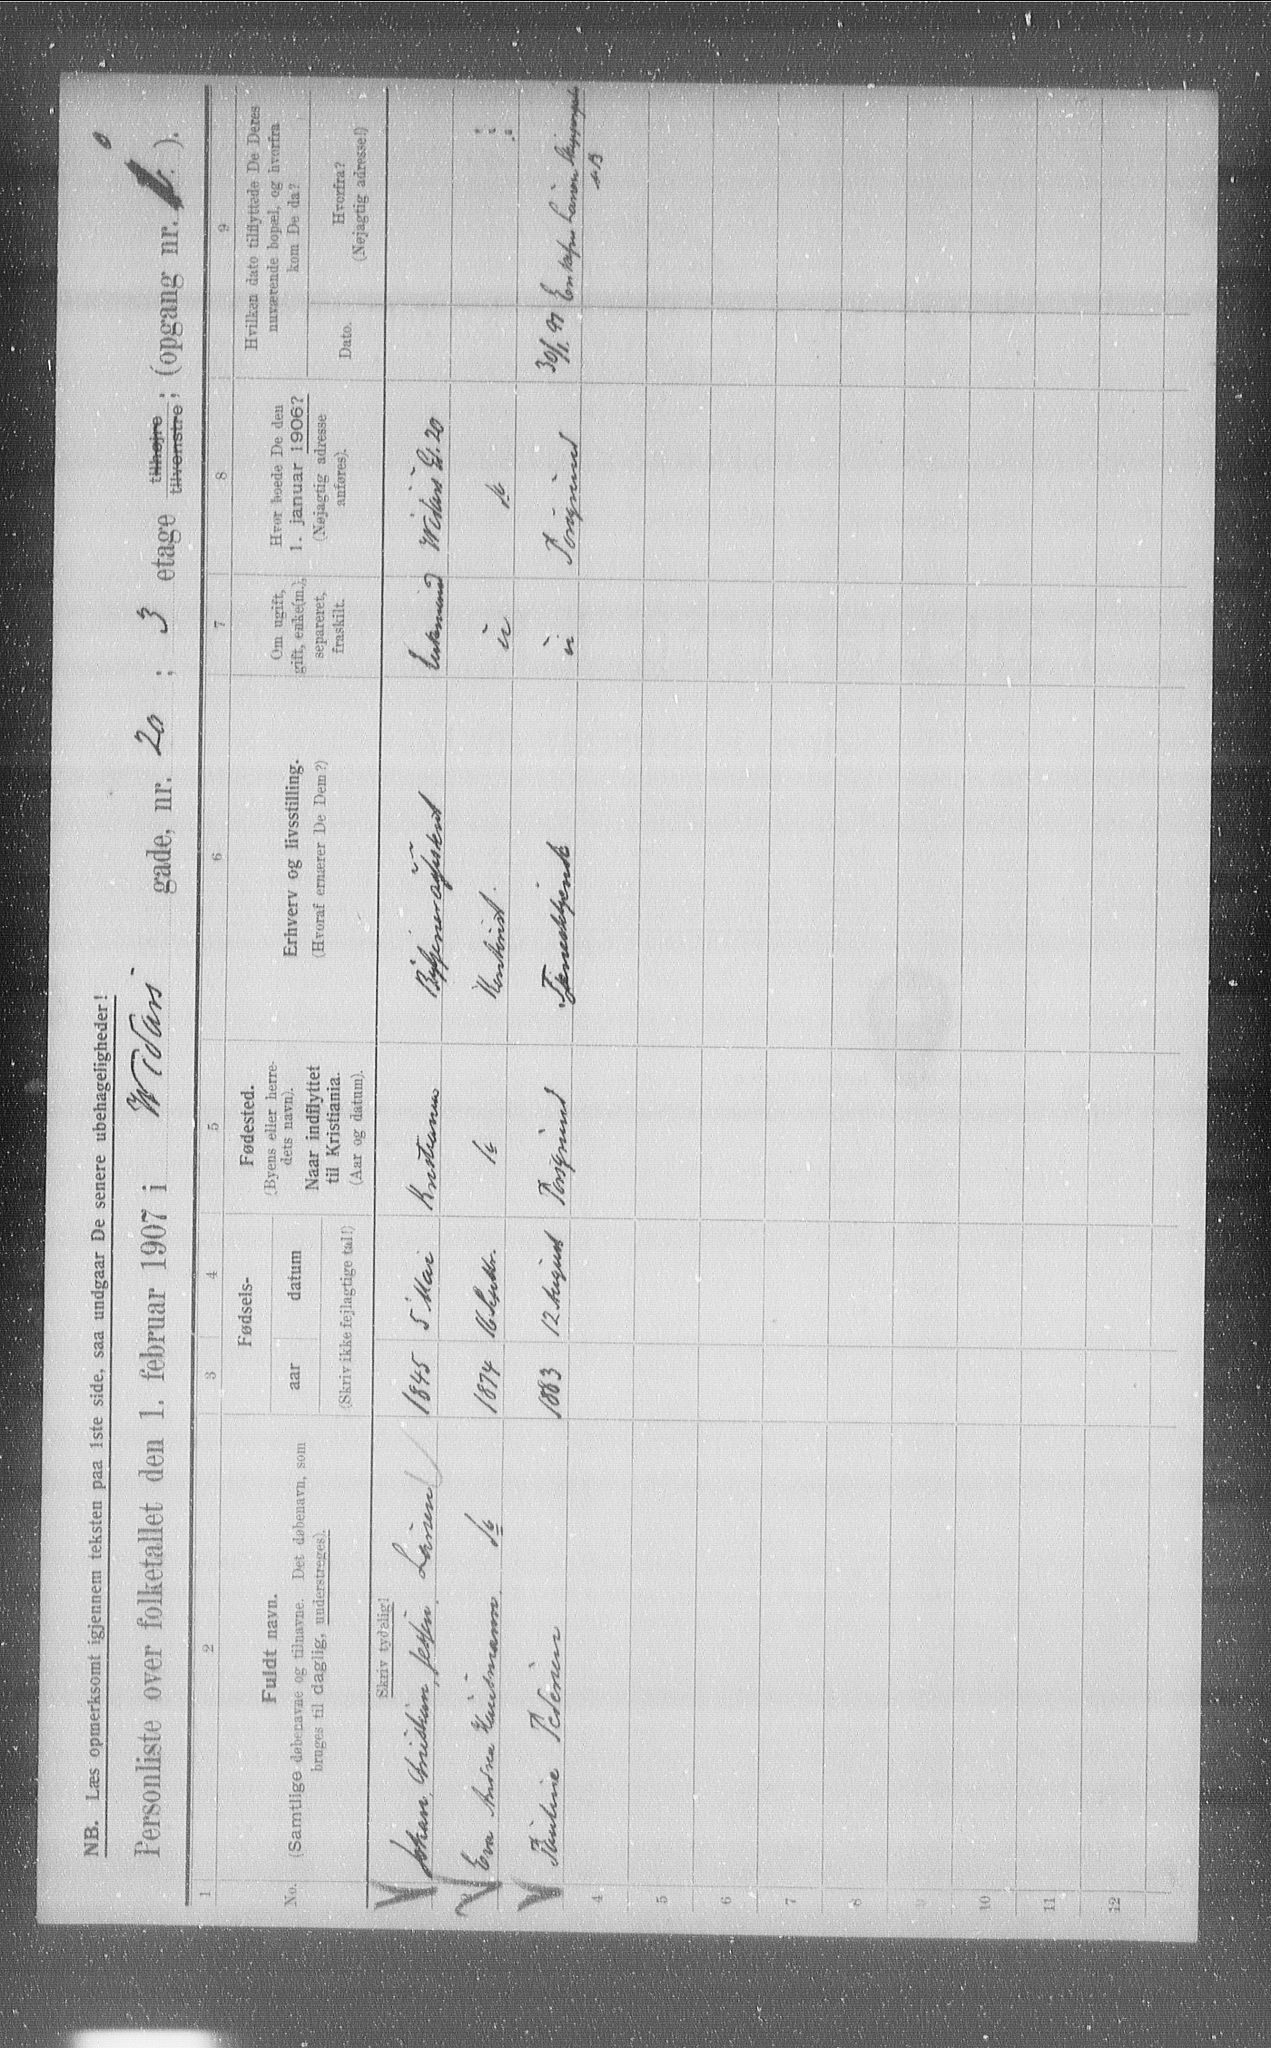 NB. Læs opmerksomt igjennem teksten paa 1ste side, saa undgaar De senere ubehageligheder!
Personliste over folketallet den 1. februar 1907 i Widars gade, nr. 20 ; 3 etage tilhøjre tilvenstre ; (opgang nr. ).
1 2 3 4 5 6 7 8 9
No.
Fuldt navn.
(Samtlige døbenavne og tilnavne. Det døbenavn, som
bruges til daglig, understreges).
Fødsels-
aar datum
(Skriv ikke fejlagtige tal!)
Fødested.
(Byens eller herre-
dets navn).
Naar indflyttet
til Kristiania.
(Aar og datum).
Erhverv og livsstilling.
(Hvoraf ernærer De Dem?)
Om ugift,
gift, enke(m.),
separeret,
fraskilt.
Hvor boede De den
1. januar 1906?
(Nøjagtig adresse
anføres).
Hvilken dato tilflyttede De Deres
nuværende bopæl, og hvorfra
kom De da?
Dato.
Hvorfra?
(Nøjagtig adresse!)
Skriv tydelig!
Johan Christian Larsen 1845 5 Mai Kristiania Enkemand Widars G. 20
Eva Andrea do 1874 16 Septbr. do Kontorist. do
Pauline Pedersen 1883 12 August Porsgrund Tjenestepige Porsgrund 30/1 07
4
5
6
7
8
9
10
11
12